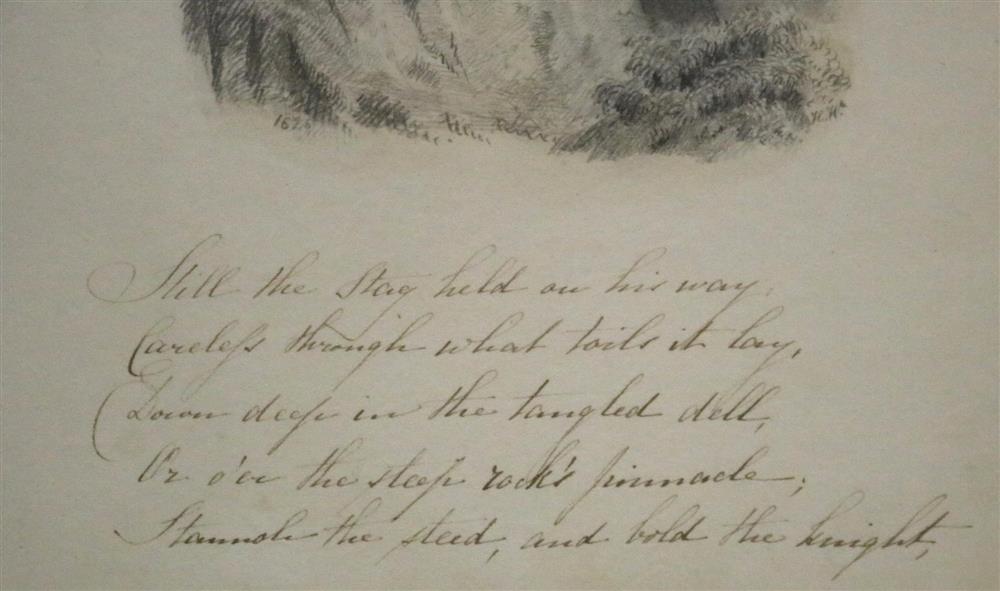 H. H.
Still the Stag held on his way,
Careless through what toils it lay,
Down deep in the tangled dell,
Or o'er the steep rock's pinnacle;
Staunch the steed, and bold the knight,